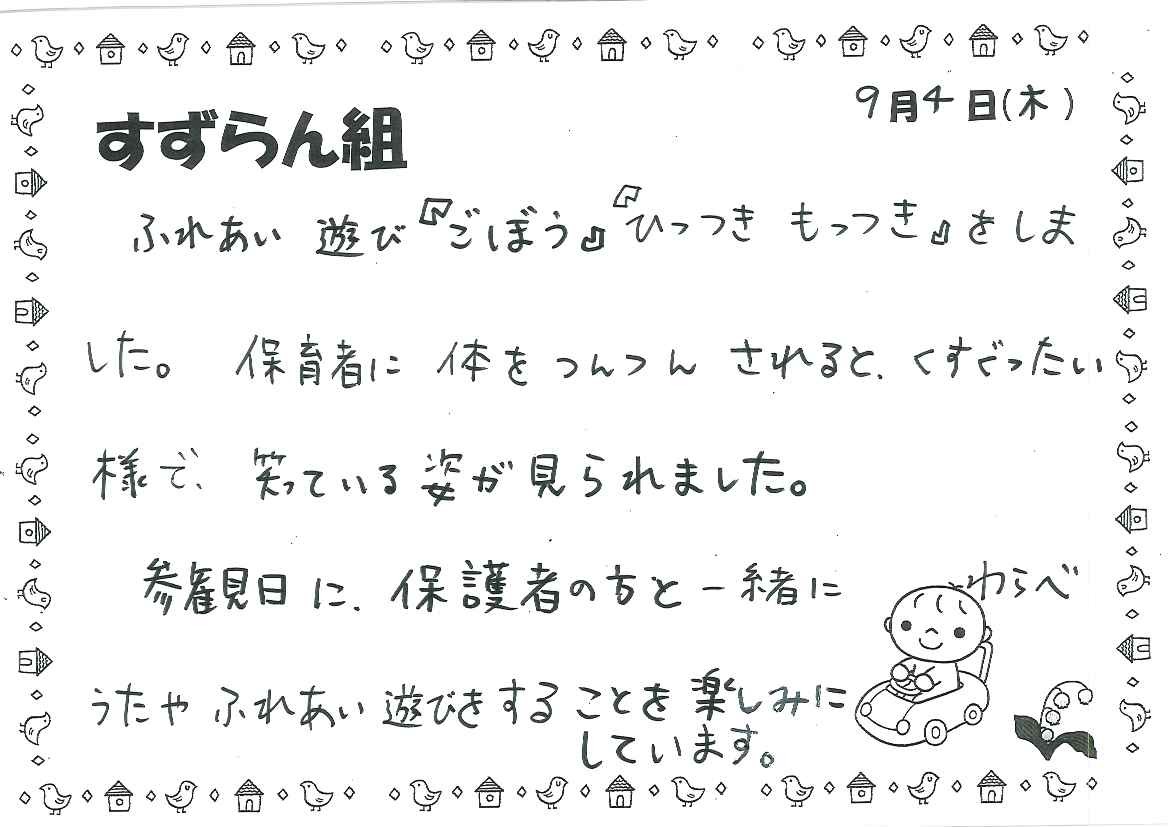 9月4日(木)
すずらん組
ふれあい遊び『ごぼう』『ひっつきもっつき』をしま
した。保育者に体をつんつんされると、くすぐったい
様で、笑っている姿が見られました。
参観日に、保護者の方と一緒にわらべ
うたやふれあい遊びをすることを楽しみに
しています。